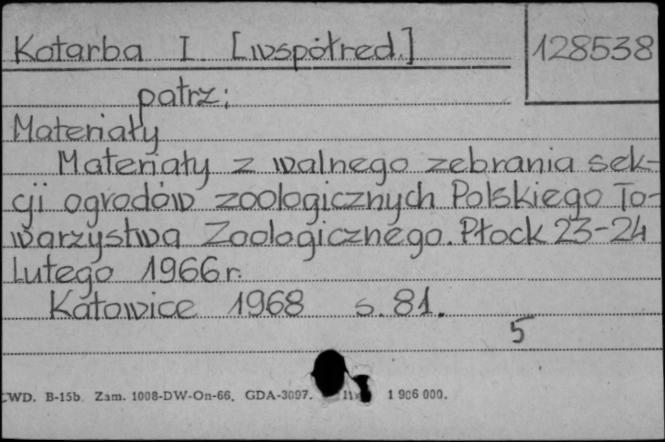 Kotarba I. [współred.] 128538
patrz:
Materiały
Materiały z walnego zebrania sek-
cji ogrodów zoologicznych Polskiego To-
warzystwa Zoologicznego. Płock 23-24
lutego 1966 r.
Katowice 1968 s. 81.
5
CWD. B-15b. Zam. 1008-DW-On-66. GDA-3097. 1 906 000.